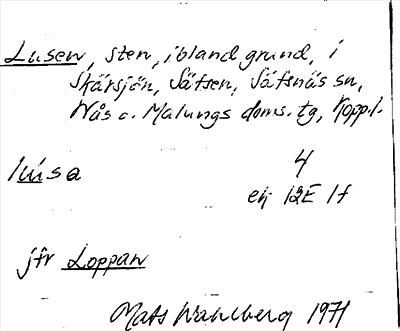 Lusen, sten, ibland grund, i
Skärsjön, Säfsen, Säfsnäs sn,
Nås o. Malungs doms. tg, Kopp. l.
lúsa 4
ek 12E 1f
jfr Loppan
Mats Wahlberg 1971